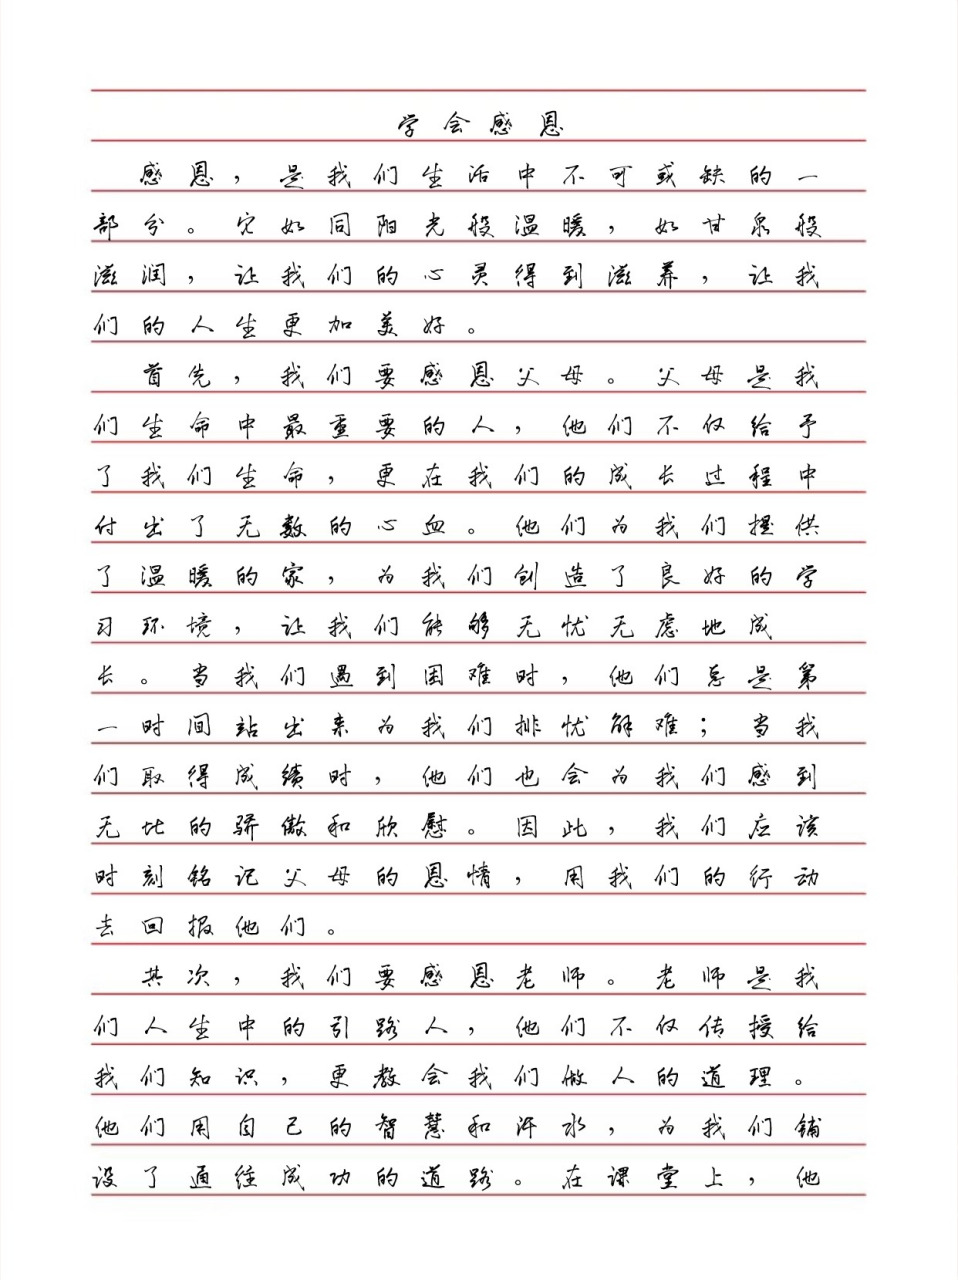 学会感恩
感恩，是我们生活中不可或缺的一
部分。它如同阳光般温暖，如甘泉般
滋润，让我们的心灵得到滋养，让我
们的人生更加美好。
首先，我们要感恩父母。父母是我
们生命中最重要的人，他们不仅给予
了我们生命，更在我们的成长过程中
付出了无数的心血。他们为我们提供
了温暖的家，为我们创造了良好的学
习环境，让我们能够无忧无虑地成
长。当我们遇到困难时，他们总是第
一时间站出来为我们排忧解难；当我
们取得成绩时，他们也会为我们感到
无比的骄傲和欣慰。因此，我们应该
时刻铭记父母的恩情，用我们的行动
去回报他们。
其次，我们要感恩老师。老师是我
们人生中的引路人，他们不仅传授给
我们知识，更教会我们做人的道理。
他们用自己的智慧和汗水，为我们铺
设了通往成功的道路。在课堂上，他